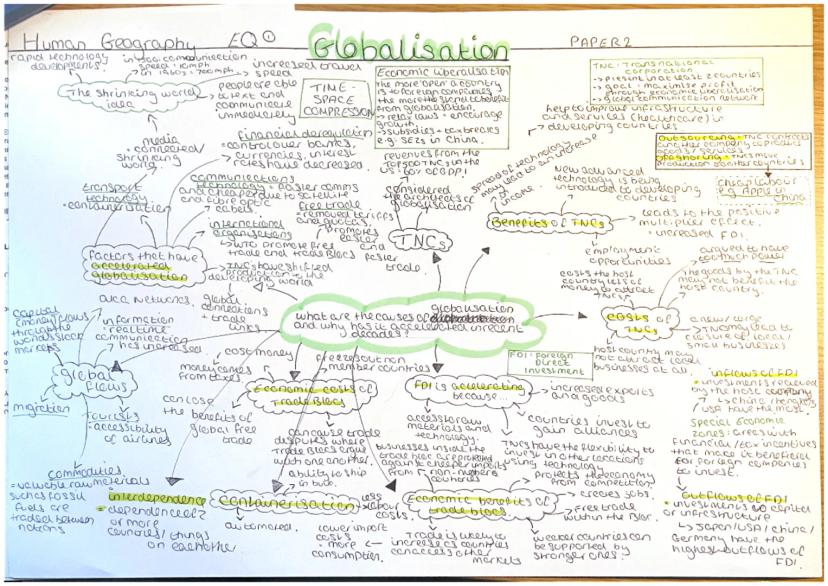 Human Geography
EQ①
Globalisation
PAPER 2
rapid technology
developments.
increased travel
speed
The shrinking world
idea
people are able
to text and
communicate
immediately
TIME-
SPACE
COMPRESSION
media
= connected/
shrinking
world.
Economic liberalisation
the more open a country
is to foreign companies
the more they stand to benefit
from globalisation.
→ relax laws = encourage
growth.
→ subsidies + tax breaks
e.g. SEZs in China.
TNC: Transnational
corporation
→ present in at least 2 countries
→ goal: maximise profit
through economic liberalisation
→ global communication network
help to improve infrastructure
and services (healthcare) in
developing countries
Outsourcing = TNC contracts
another company to produce
goods/services
offshoring = TNCs move
production to other countries
cheap labour
e.g. Apple in
china
Financial deregulation
= control over banks,
currencies, interest
rates have decreased.
revenues from the
TNCs in the
US
transport
technology
= containerisation
communications
technology = easier comms
and cheaper due to satellite
and fibre optic
cables.
free trade
= removed tariffs
and quotas.
promotes
easier
and
easier
trade.
international
organisations
↳ WTO promote free
trade and trade blocs
considered
the architects of
globalisation
TNCs
spread of technology
may lead to an increase
in income
New advanced
technology is being
introduced to developing
countries
Benefits of TNCs
leads to the positive
multiplier effect.
= increased FDI.
employment
opportunities
Factors that have
accelerated
globalisation
TNCs have shifted
production to the
developing world
global
connections
+ trade
links
area networks.
what are the causes of globalisation
and why has it accelerated in recent
decades?
costs the host
country lots of
money to attract
TNCs
argued to have
too much power
the goods by the TNC
may not benefit the
host country.
costs of
TNCs
a new large
TNC may lead to
closure of local
small businesses
host country may
not attract local
businesses at all.
capital
(money) flows
through the
world's stock
markets
information
= real time
communication
has increased
global
flows
migration
tourists
= accessibility
of airlines
commodities
= valuable raw materials
such as fossil
fuels are
traded between
nations
cost money
money comes
from taxes
can lose
the benefits of
global free
trade
Economic costs of
Trade Blocs
freezes out non
member countries
can cause trade
disputes where
trade blocs argue
with one another.
FDI: Foreign
Direct
Investment
FDI is accelerating
because...
increased exports
and goods
access to raw
materials and
technology.
countries invest to
gain alliances
TNCs have the flexibility to
invest in other locations
using technology
inflows of FDI
= investments received
by the host company
↳ china/hong kong/
USA have the most.
Special Economic
zones: areas with
Financial/tax incentives
that make it beneficial
for foreign companies
to invest.
outflows of FDI
= investments of capital
or infrastructure
↳ Japan/USA/china/
Germany have the
highest outflows of
FDI.
interdependence
= dependence of 2
or more
countries/things
on each other
containerisation
ability to ship
in bulk.
less
labour
costs.
automated.
lower import
costs
= more
consumption.
businesses inside the
trade bloc are protected
against cheaper imports
from non-members
countries
protects the economy
from competition.
Economic benefits of
trade blocs
creates jobs.
Free trade
within the bloc.
Trade is likely to
increase as countries
can access other
markets
weaker countries can
be supported by
stronger ones.